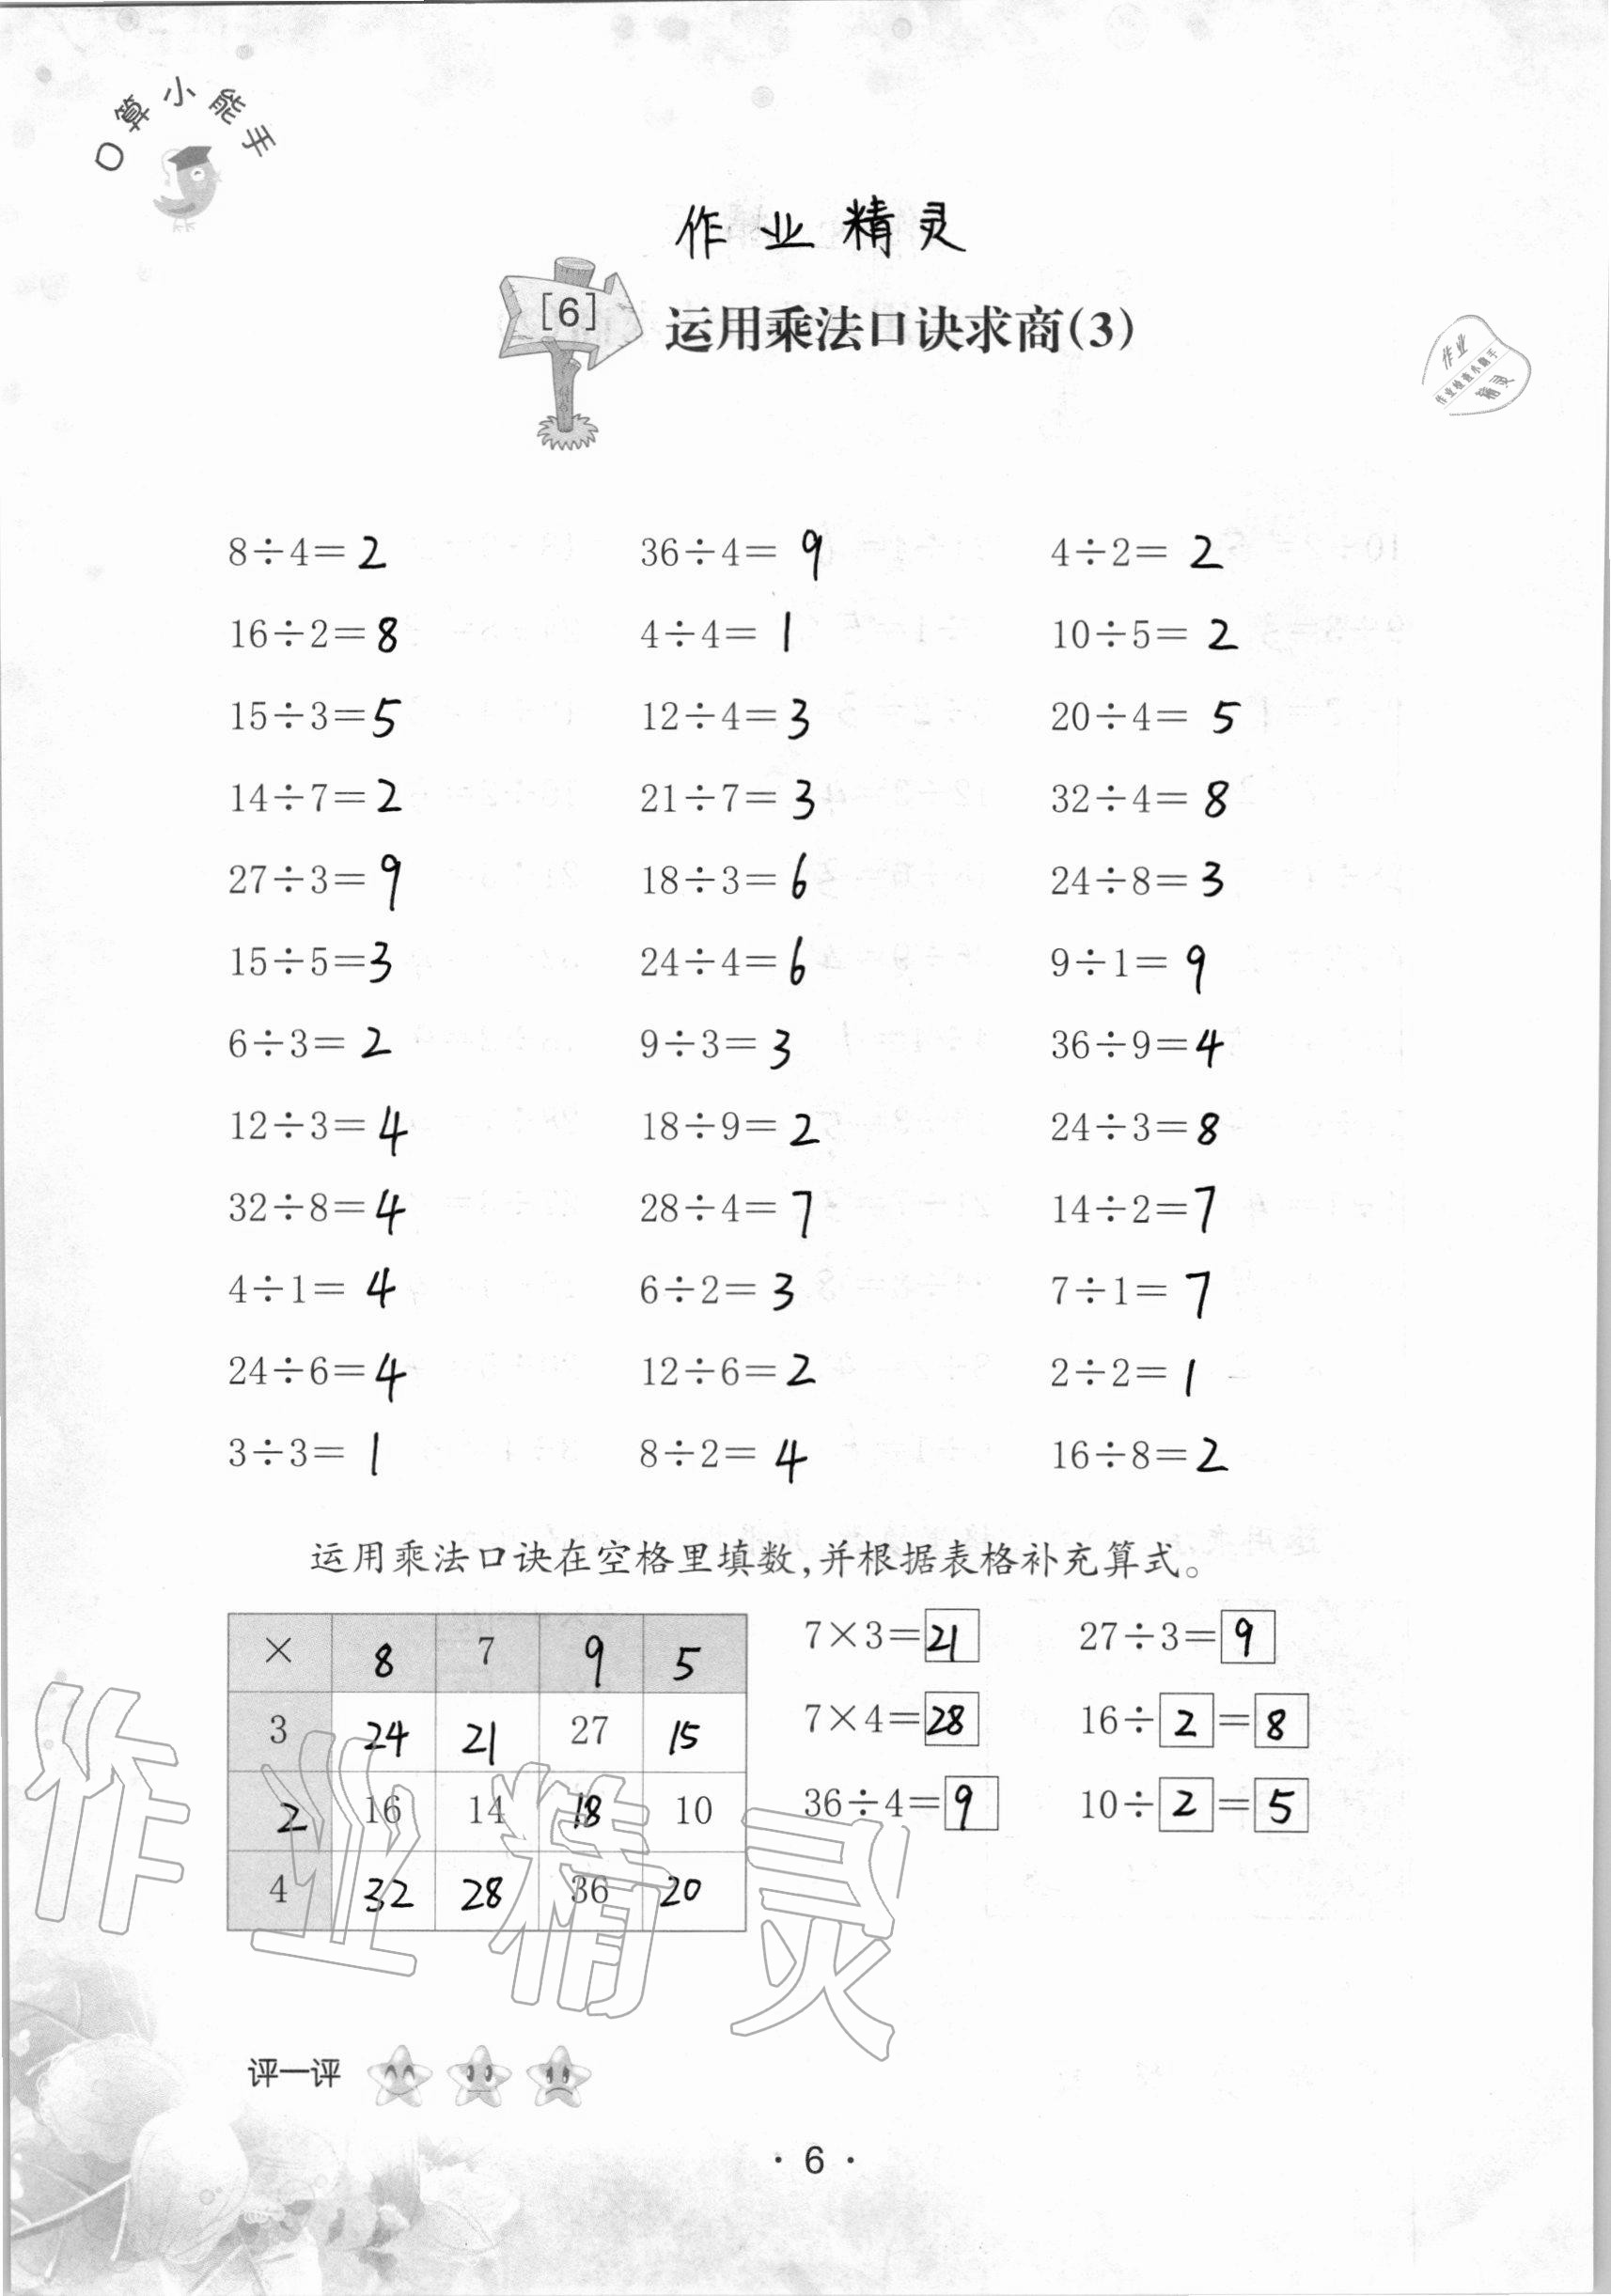 口算小能手
作业精灵
[6] 运用乘法口诀求商(3)
作业
作业检查小助手
精灵
8÷4=2 36÷4=9 4÷2=2
16÷2=8 4÷4=1 10÷5=2
15÷3=5 12÷4=3 20÷4=5
14÷7=2 21÷7=3 32÷4=8
27÷3=9 18÷3=6 24÷8=3
15÷5=3 24÷4=6 9÷1=9
6÷3=2 9÷3=3 36÷9=4
12÷3=4 18÷9=2 24÷3=8
32÷8=4 28÷4=7 14÷2=7
4÷1=4 6÷2=3 7÷1=7
24÷6=4 12÷6=2 2÷2=1
3÷3=1 8÷2=4 16÷8=2
运用乘法口诀在空格里填数,并根据表格补充算式。
× 8 7 9 5
3 24 21 27 15
2 16 14 18 10
4 32 28 36 20
7×3=21 27÷3=9
7×4=28 16÷2=8
36÷4=9 10÷2=5
作业精灵
评一评
·6·